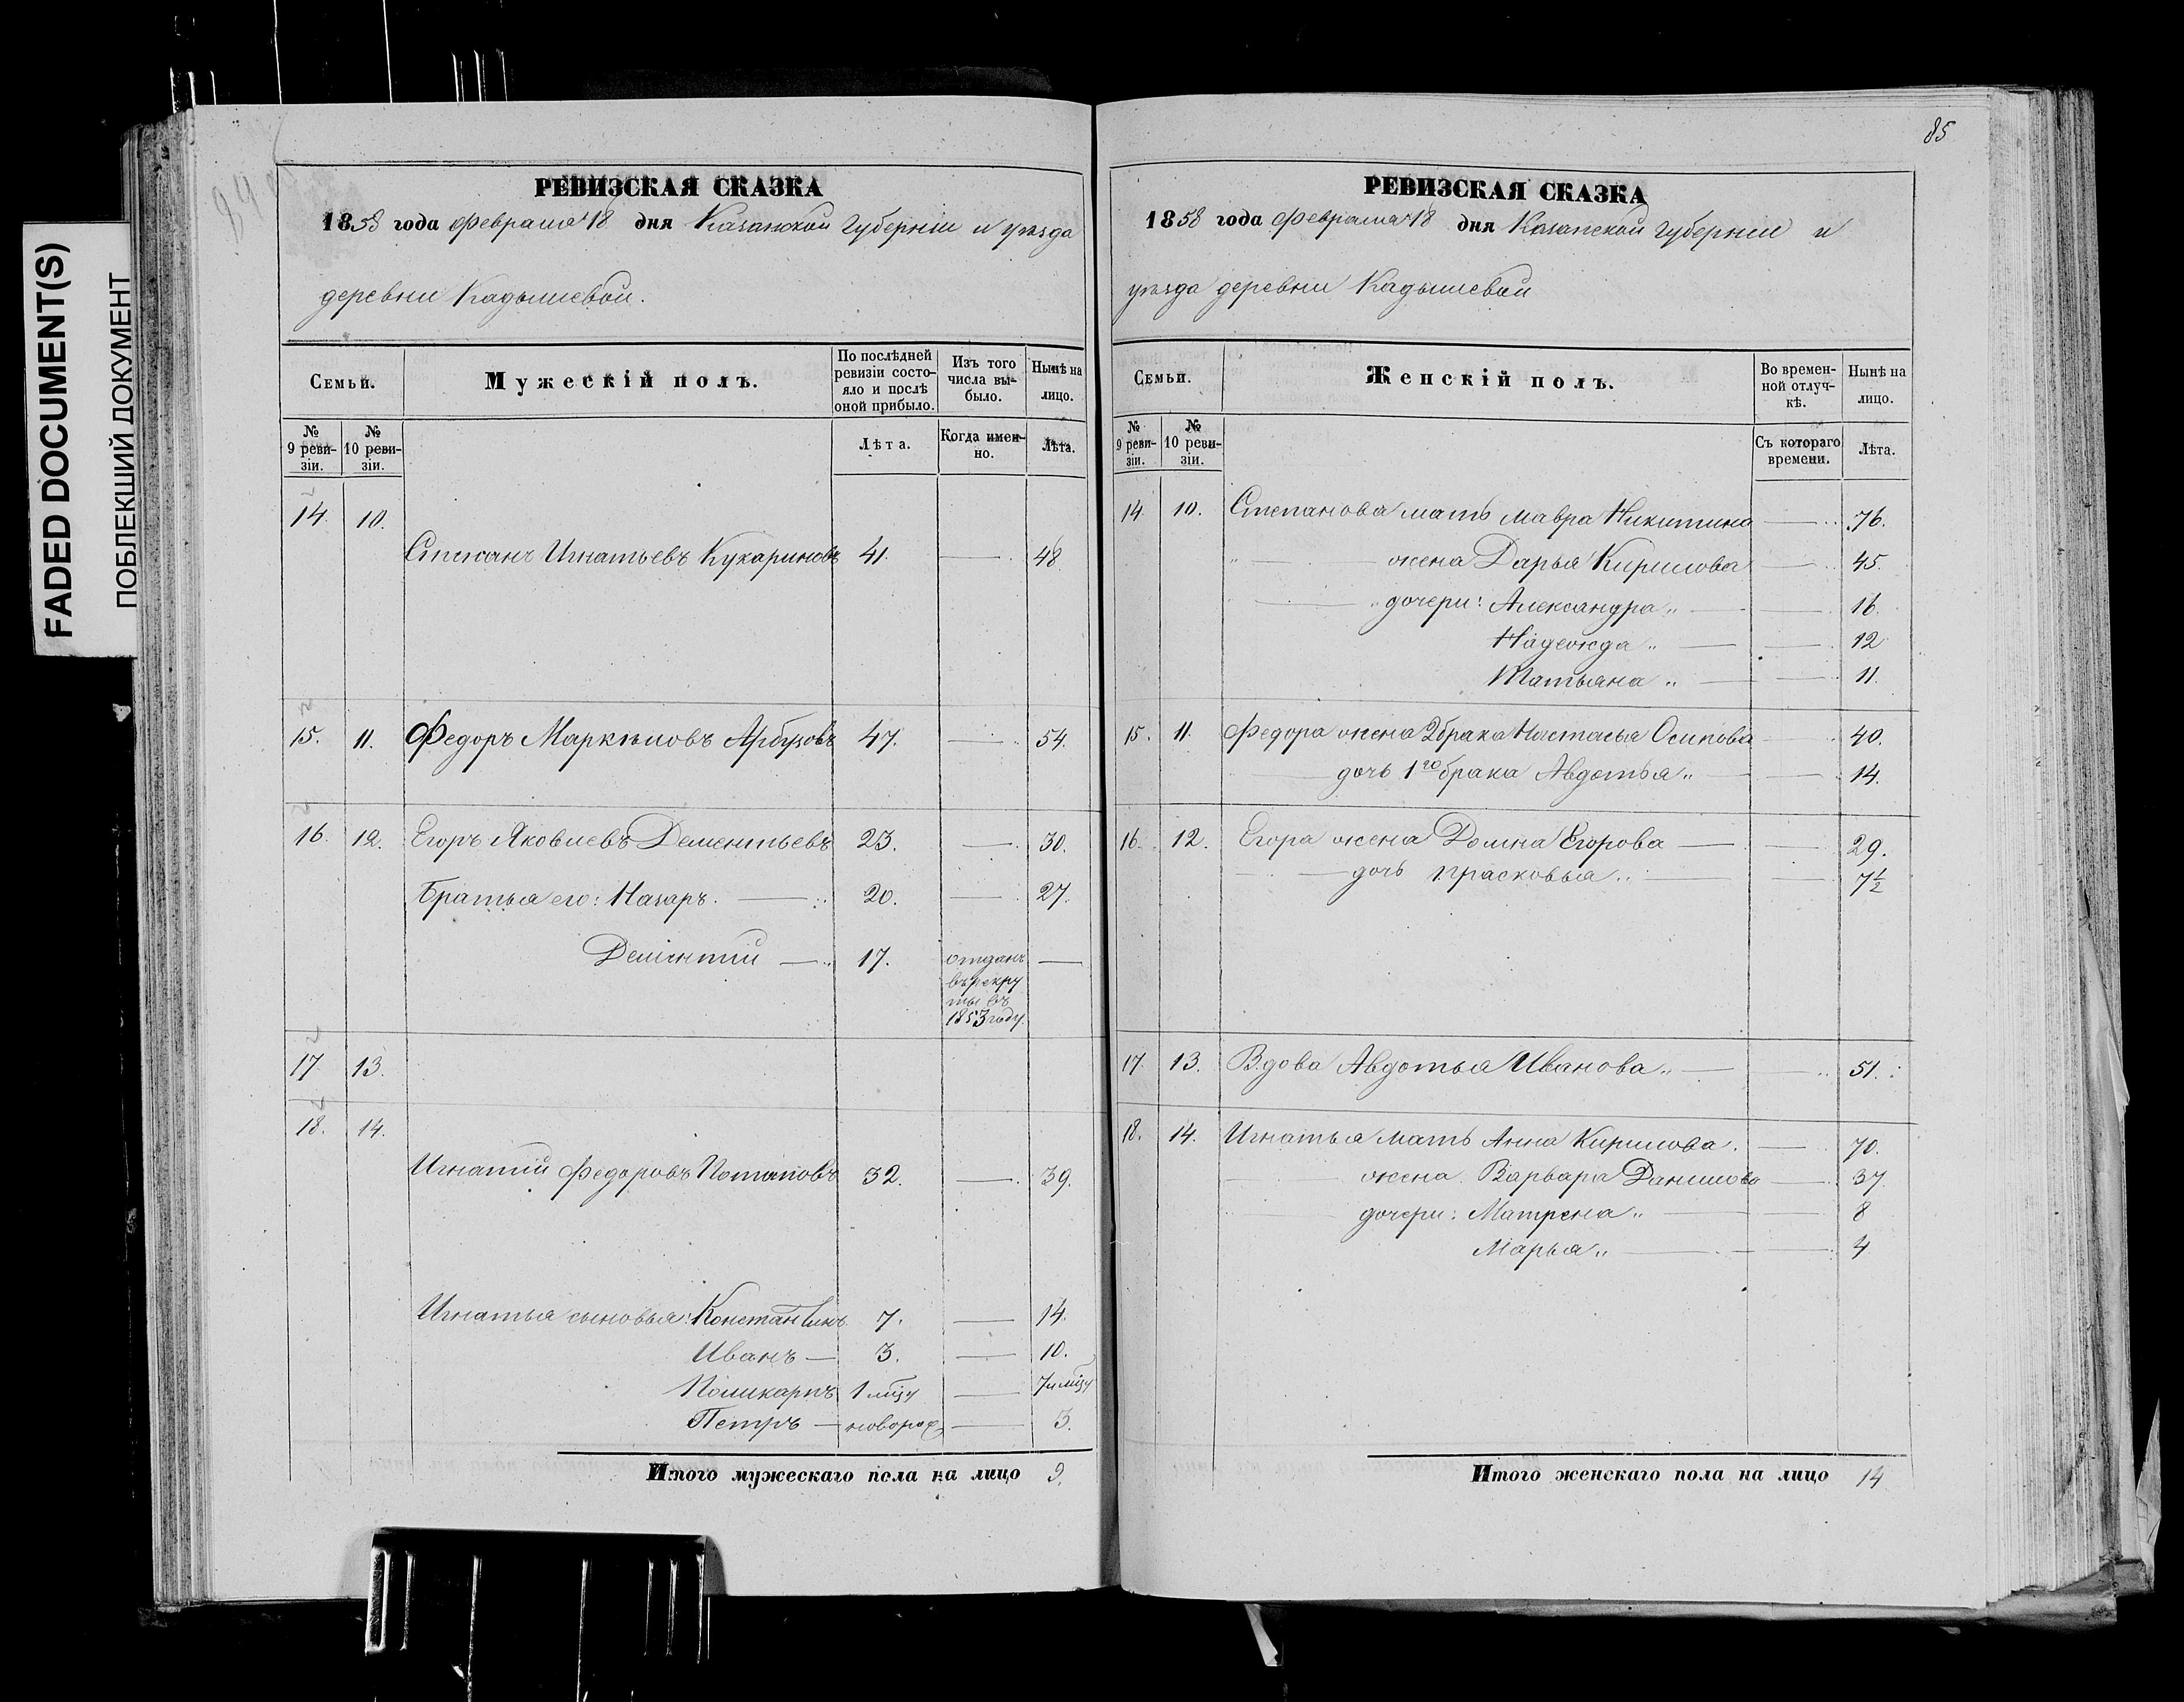 FADED DOCUMENT(S)
ПОБЛЕКШИЙ ДОКУМЕНТ
РЕВИЗСКАЯ СКАЗКА
1858 года февраля 18 дня Казанской губерніи и уѣзда
деревни Кадышевой.
Семьи.
Мужескій полъ.
По послѣдней ревизіи состояло и послѣ оной прибыло.
Изъ того числа выбыло.
Нынѣ на лицо.
№ 9 ревизіи.
№ 10 ревизіи.
Лѣта.
Когда именно.
Лѣта.
14. 10.
Степанъ Игнатьевъ Кукариновъ 41. — 48
15. 11. Федоръ Маркѣловъ Арбузовъ 47. — 54.
16. 12. Егоръ Яковлевъ Дементьевъ 23. — 30.
Братья его: Назаръ. — 20. — 27.
Дементий — 17. отданъ —
въ рекру
ты въ
1853 году.
17. 13.
18. 14.
Игнатий Федоровъ Потаповъ 32. — 39.
Игнатья сыновья: Константинъ 7. — 14.
Иванъ — 3. — 10.
Поликарпъ 1 мцзу — 7 и мцзу
Петръ — новорож — 3.
Итого мужескаго пола на лицо 9.
85
РЕВИЗСКАЯ СКАЗКА
1858 года февраля 18 дня Казанской губерніи и
уѣзда деревни Кадышевой
Семьи.
Женскій полъ.
Во временной отлучкѣ.
Нынѣ на лицо.
№ 9 ревизіи.
№ 10 ревизіи.
Съ котораго времени.
Лѣта.
14 10. Степанова мать Мавра Никитина — 76.
" — жена Дарья Кирилова — 45.
— " дочери: Александра " — 16.
Надежда " — 12
Татьяна " — 11.
15. 11. Федора жена 2 брака Настасья Осипова — 40.
дочь 1го брака Авдотья " — 14.
16. 12. Егора жена Домна Егорова — 29.
— дочь Прасковья " — 7½
17. 13. Вдова Авдотья Иванова " — 51.
18. 14. Игнатья мать Анна Кирилова. — 70.
— жена Варвара Данилова — 37
дочери: Матрена " — 8
Марья " — 4
Итого женскаго пола на лицо 14